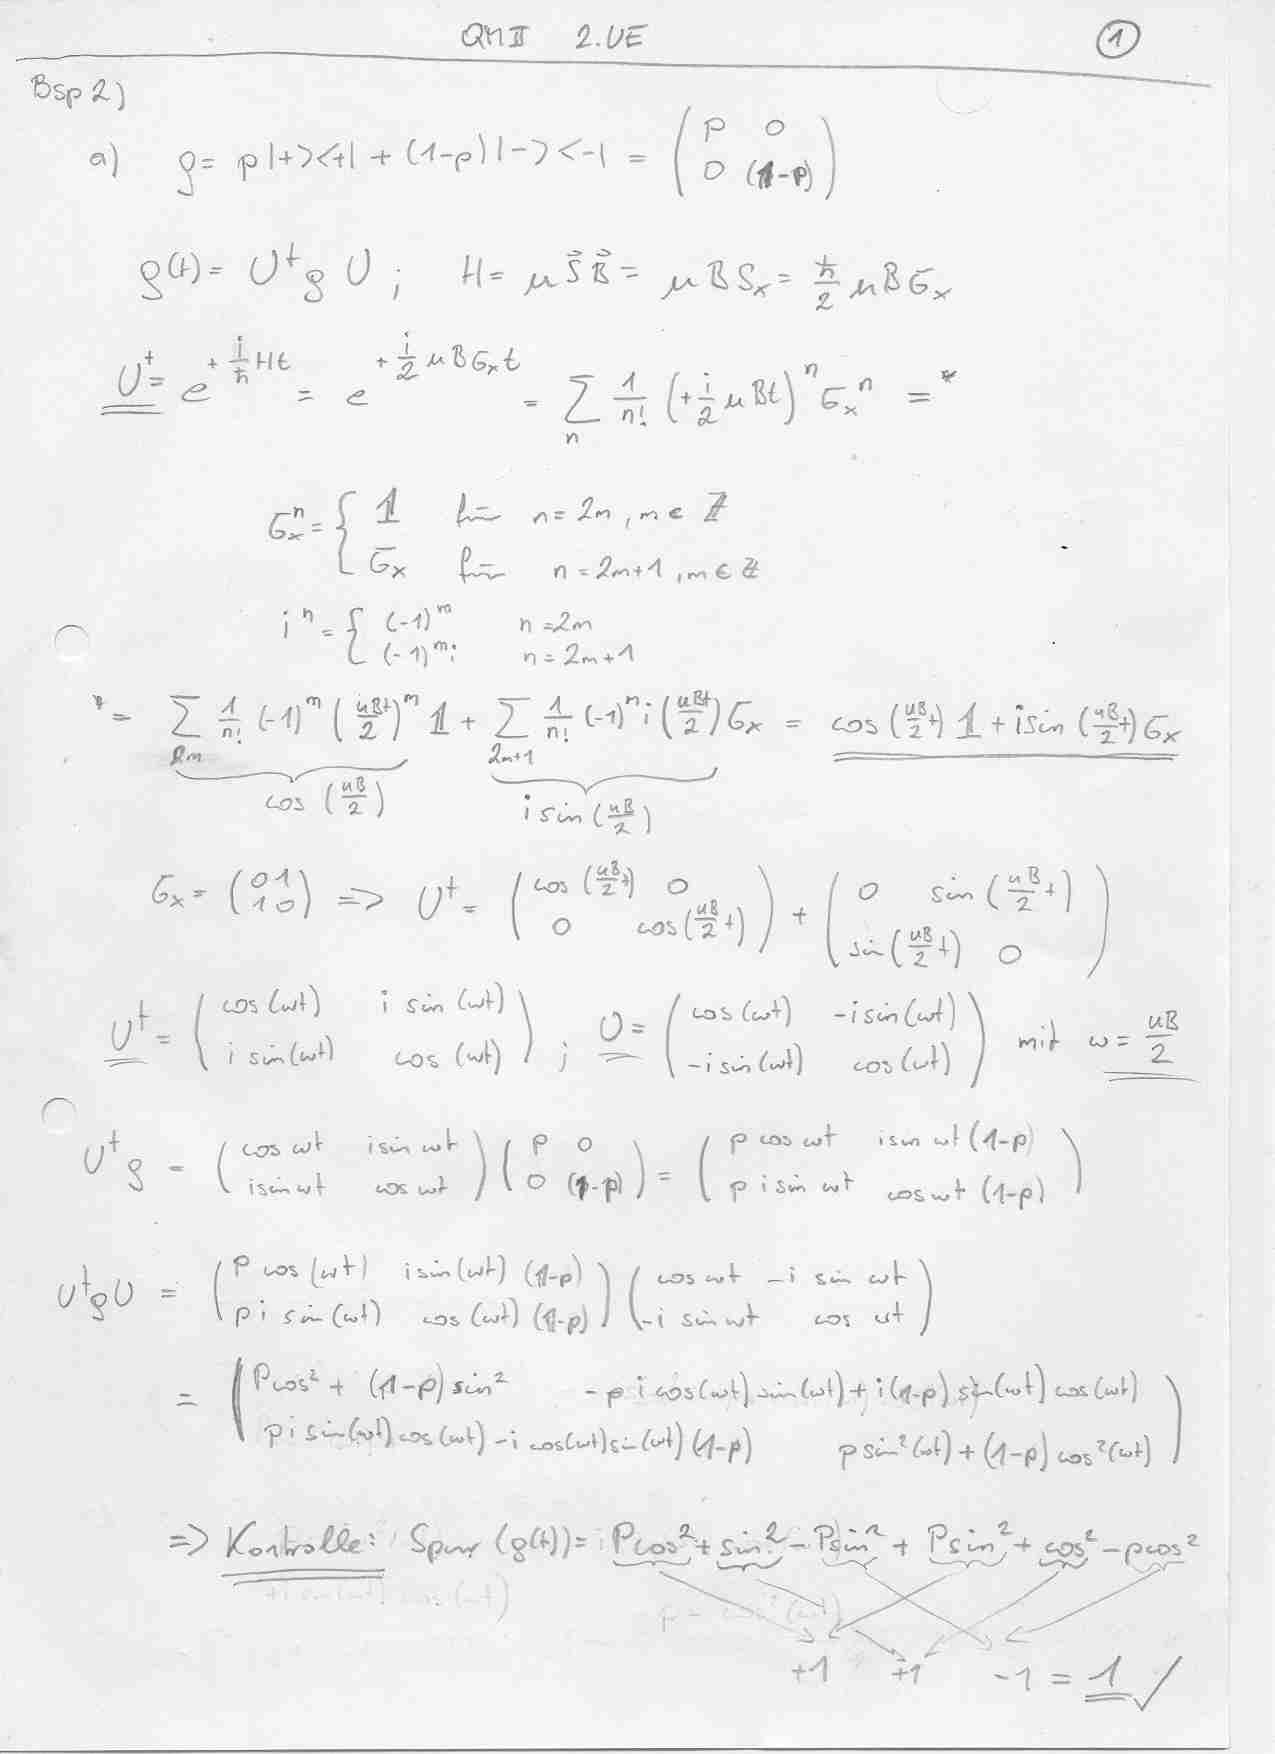 QM II 2.UE ①
Bsp 2)
a) ρ = p |+><+| + (1-p) |-><-| = ( p 0 ; 0 (1-p) )
ρ(t) = U† ρ U ; H = μ S⃗ B⃗ = μ B Sx = ħ/2 μ B σx
U† = e^(+ i/ħ Ht) = e^(+ i/2 μBσx t) = Σ_n 1/n! (+ i/2 μBt)^n σx^n = *
σx^n = { 𝟙 für n = 2m , m ∈ ℤ
σx für n = 2m+1 , m ∈ ℤ
i^n = { (-1)^m n = 2m
(-1)^m i n = 2m+1
* = Σ_2m 1/n! (-1)^m (μBt/2)^m 𝟙 + Σ_2m+1 1/n! (-1)^n i (μBt/2) σx = cos (μB/2 t) 𝟙 + i sin (μB/2 t) σx
cos (μB/2) i sin (μB/2)
σx = ( 0 1 ; 1 0 ) => U† = ( cos (μB/2 t) 0 ; 0 cos (μB/2 t) ) + ( 0 sin (μB/2 t) ; sin (μB/2 t) 0 )
U† = ( cos(ωt) i sin(ωt) ; i sin(ωt) cos(ωt) ) ; U = ( cos(ωt) -i sin(ωt) ; -i sin(ωt) cos(ωt) ) mit ω = μB/2
U†ρ = ( cos ωt i sin ωt ; i sin ωt cos ωt ) ( p 0 ; 0 (1-p) ) = ( p cos ωt i sin ωt (1-p) ; p i sin ωt cos ωt (1-p) )
U†ρU = ( p cos(ωt) i sin(ωt) (1-p) ; p i sin(ωt) cos(ωt) (1-p) ) ( cos ωt -i sin ωt ; -i sin ωt cos ωt )
= ( p cos² + (1-p) sin² -p i cos(ωt) sin(ωt) + i (1-p) sin(ωt) cos(ωt) ; p i sin(ωt) cos(ωt) - i cos(ωt) sin(ωt) (1-p) p sin²(ωt) + (1-p) cos²(ωt) )
=> Kontrolle: Spur (ρ(t)) = p cos² + sin² - p sin² + p sin² + cos² - p cos²
+1 +1 -1 = 1 ✓